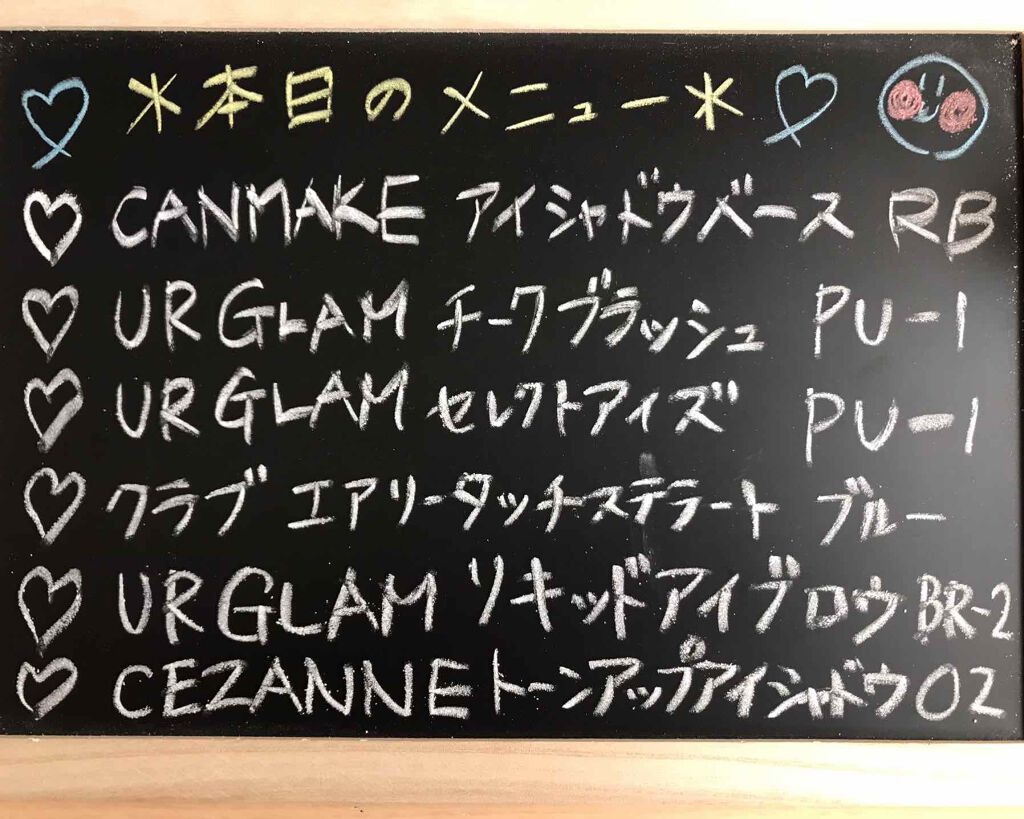 *本日のメニュー*
CANMAKE アイシャドウベース RB
UR GLAM チークブラッシュ PU-1
UR GLAM セレクトアイズ PU-1
クラブ エアリータッチステラート ブルー
UR GLAM リキッドアイブロウ BR-2
CEZANNE トーンアップアイシャドウ 02